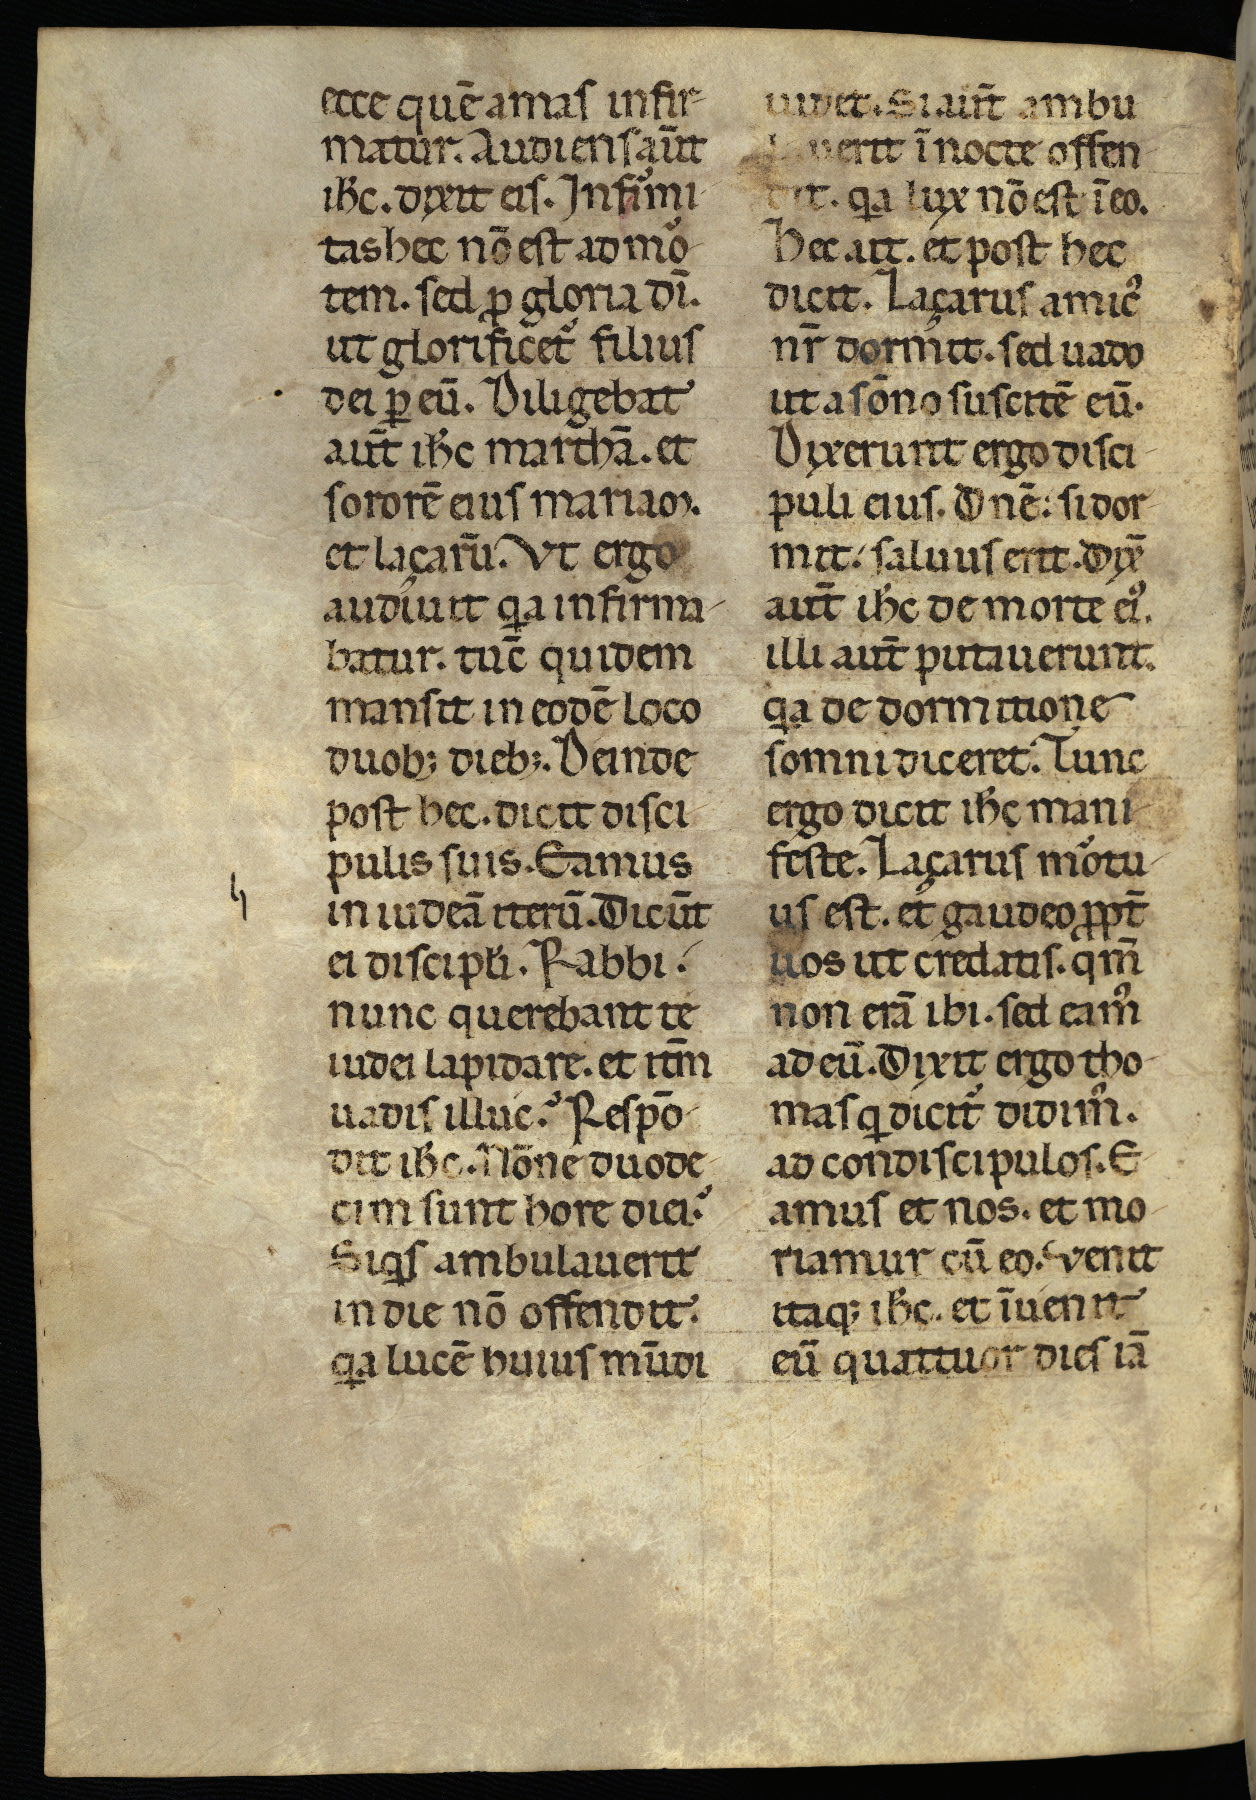 ecce quē amas infir-
matur. Audiens aūt
ihc̄. dixit eis. Infiͬmi-
tas hec nō est ad moͬ-
tem. sed ꝓ gloria dī.
ut glorificet᷑ filius
dei ꝑ eū. Diligebat
aut̄ ihc̄ marthā. et
sororē eius mariaꝫ.
et laçarū. Vt ergo
audiuit qͥa infirma-
batur. tūc quidem
mansit in eodē loco
duobꝫ diebꝫ. Deinde
post hec. dicit disci-
pulis suis. Eamus
in iudeā iterū. Dicūt
ei discipłi. Rabbi.
nunc querebant te
iudei lapidare. et itm̄
uadis illuc? Respō-
dit ihc̄. Nōne duode-
cim sunt hore diei?
Siqͥs ambulauerit
in die nō offendit.
qͥa lucē huius mūdi
uidet. Si aut̄ ambu
lauerit ī nocte offen-
dit. qͥa lux nō est ī eo.
Hec ait. et post hec
dicit. Laçarus amicꝰ
nr̄ dormit. sed uado
ut a sōno suscitē eū.
Dixerunt ergo disci-
puli eius. Dn̄e: si dor-
mit. saluus erit. Dix̄
aut̄ ihc̄ de morte eiꝰ.
illi aut̄ putauerunt.
qͥa de dormitione
somni diceret. Tunc
ergo dicit ihc̄ mani-
feste. Laçarus moͬtu-
us est. et gaudeo ꝓpt̄
uos ut credatis. qm̄
non erā ibi. sed eamꝰ
ad eū. Dixit ergo tho-
mas qͥ dicit᷑ didimꝰ.
ad condiscipulos. E-
amus et nos. et mo-
riamur cū eo. Venit
itaqꝫ ihc̄. et īuenit
eū quattuor dies iā